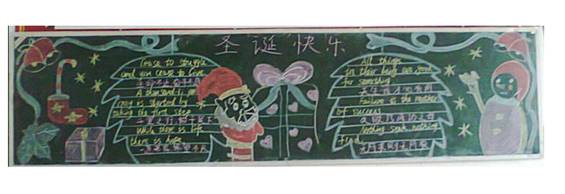 圣诞快乐
Cease to struggle
and you cease to live
A thousand-li jour
ney is started by
taking the first step
While there is life
there is hope
All things
in their being are good
for something
天生我才必有用
Failure is the mother
of success
Nothing seek nothing
find